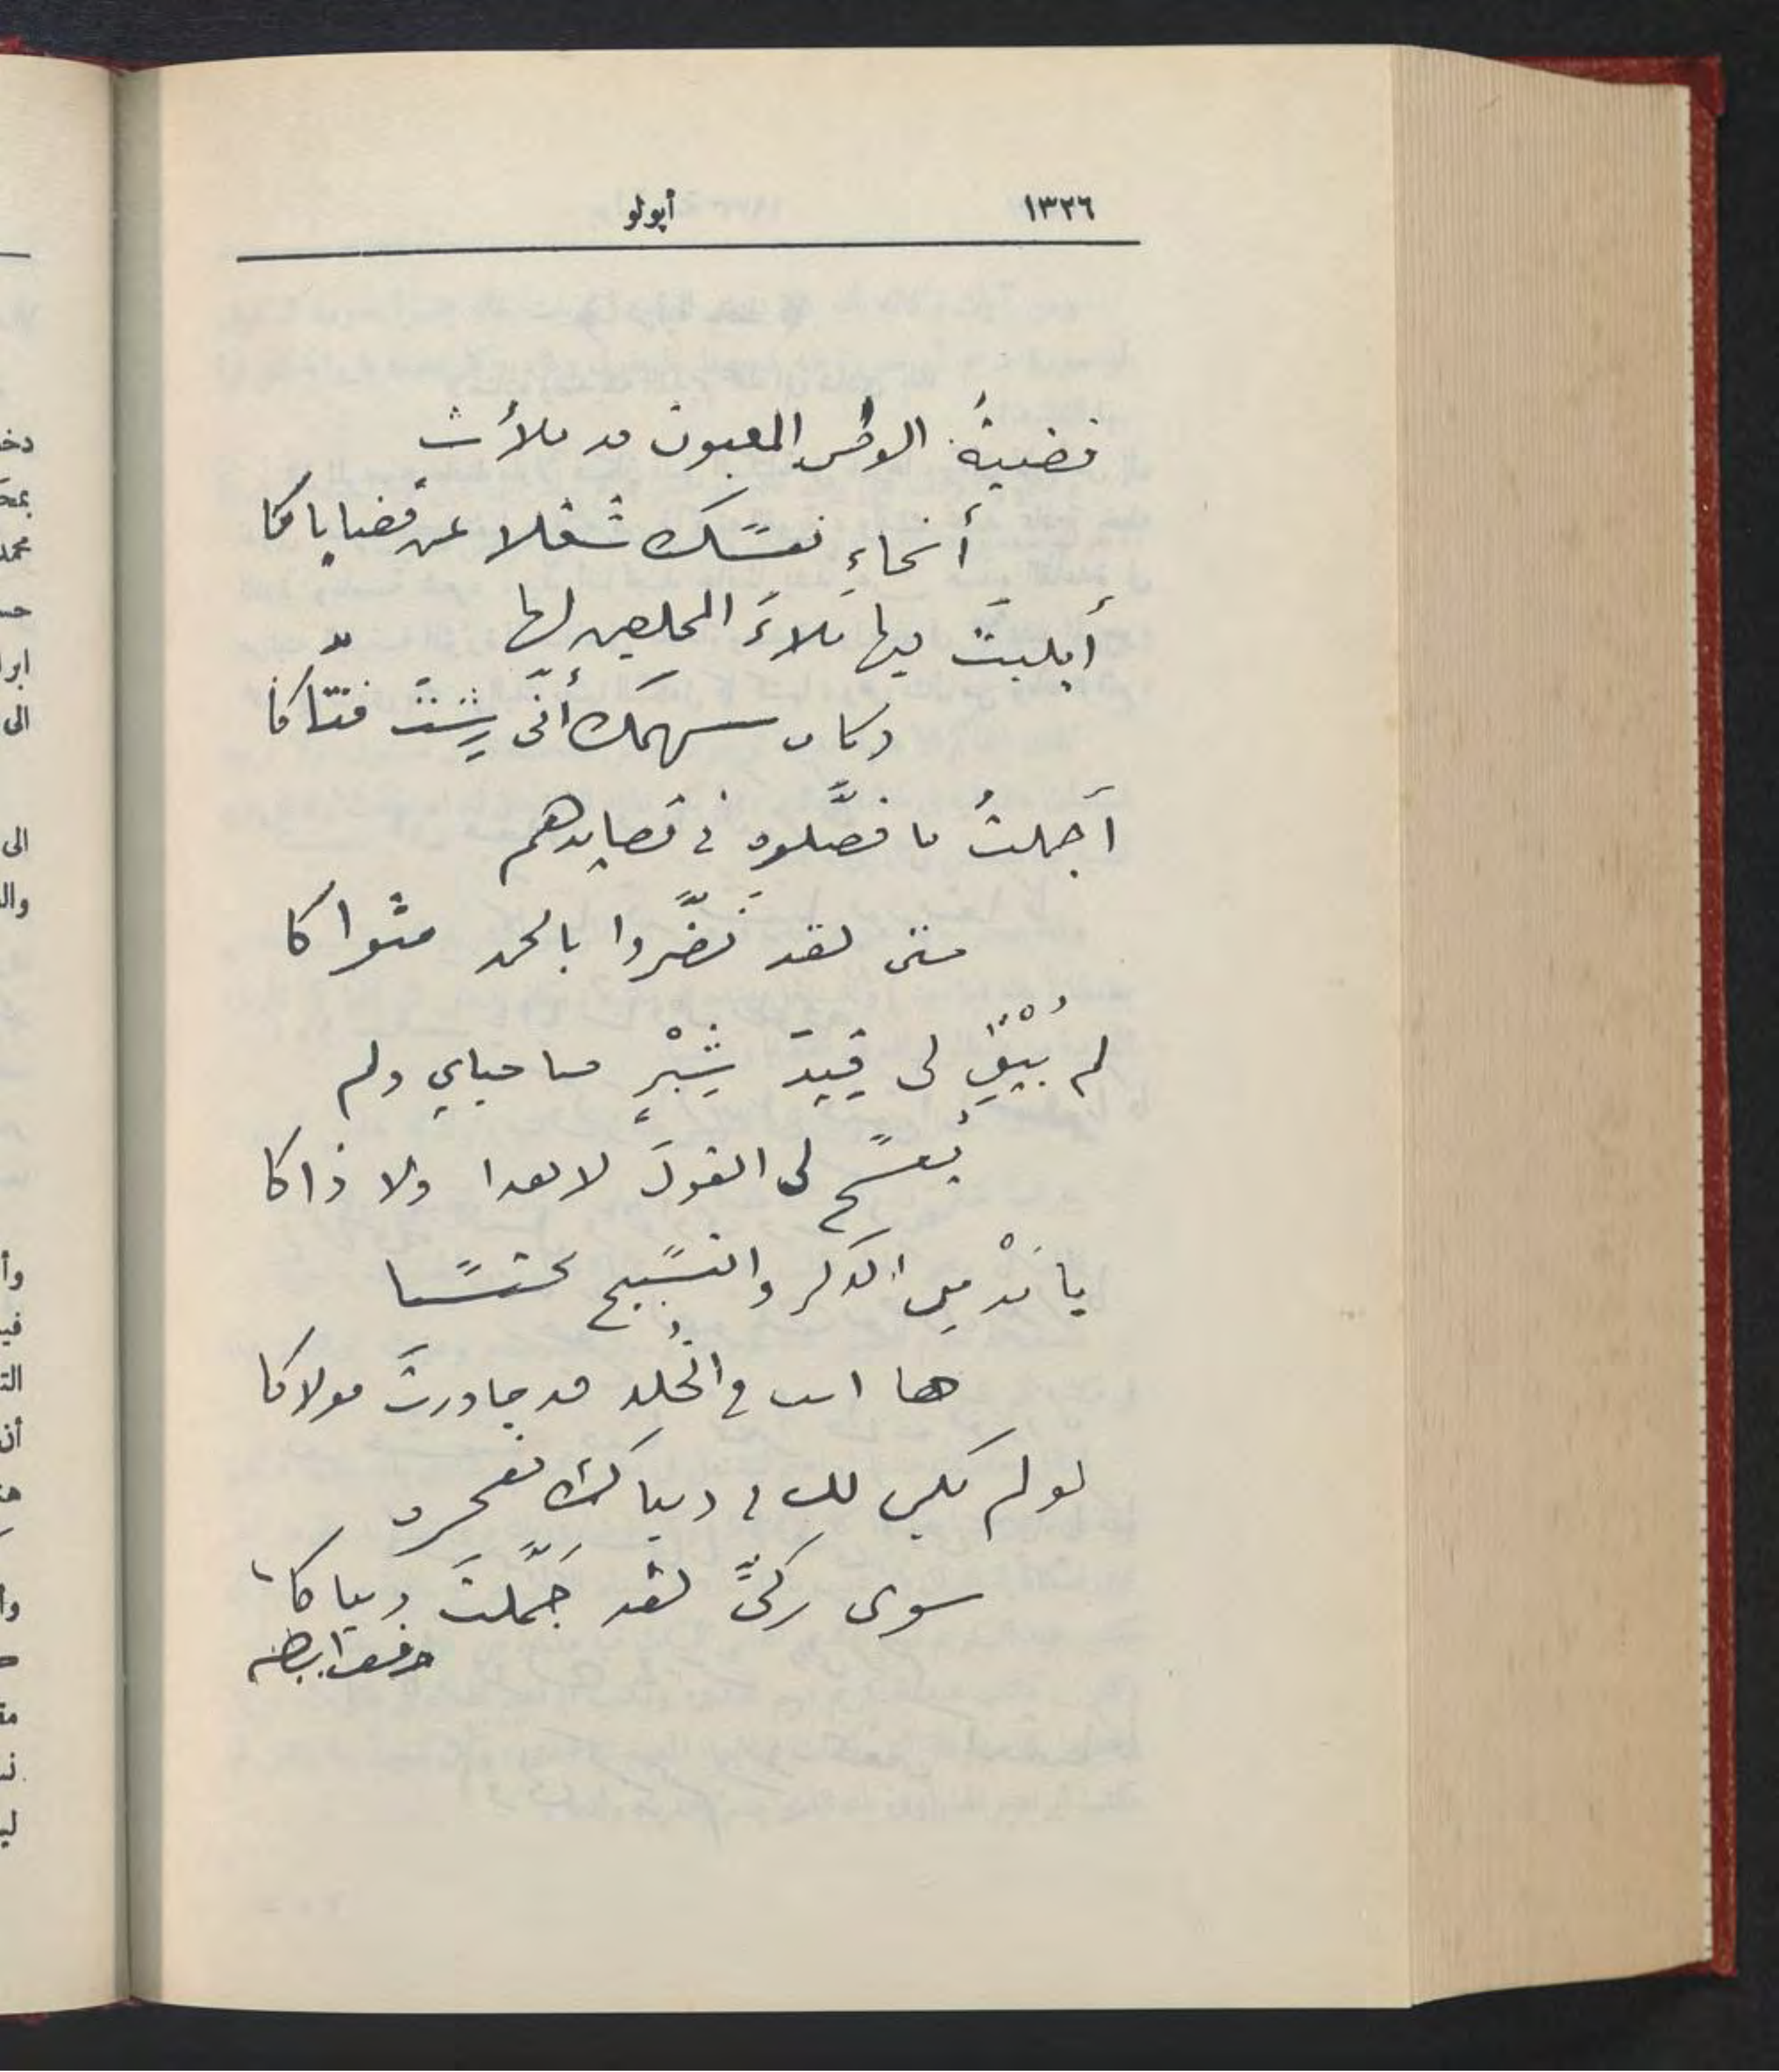 ١٣٢٦ أپولو
قضيةُ الوطن المغبون قد ملأت
أنحاءِ نفسك شغلا عن قضاياكا
أبليتَ فيها بَلاءَ المخلصين لها
وكان سهمك أنّى رِشتَ فتّاكا
أجملتُ ما فصَّلوه في قصايدهم
حتى لقد نَضَّروا بالحمد مثواكا
لم يُبْقِ لي قِيدَ شِبْرٍ صاحباي ولم
يُفسح لي القول لا هذا ولا ذاكا
يا مُدْمِن الذكر والتسبيح محتسبا
ها انت في الخُلد قد جاورتَ مولاكا
لو لم يكن لك في دنياك مفخرة
سوى زكيّ لقد جَمَّلتَ دنياكا
حافظ ابراهيم